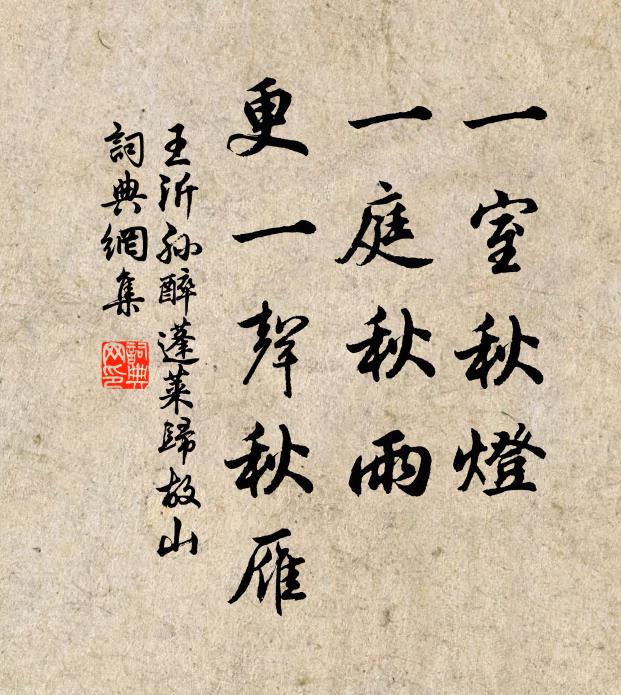 一室秋燈
一庭秋雨
更一聲秋雁
王沂孫醉蓬萊歸故山
詞典網集
詞典网印